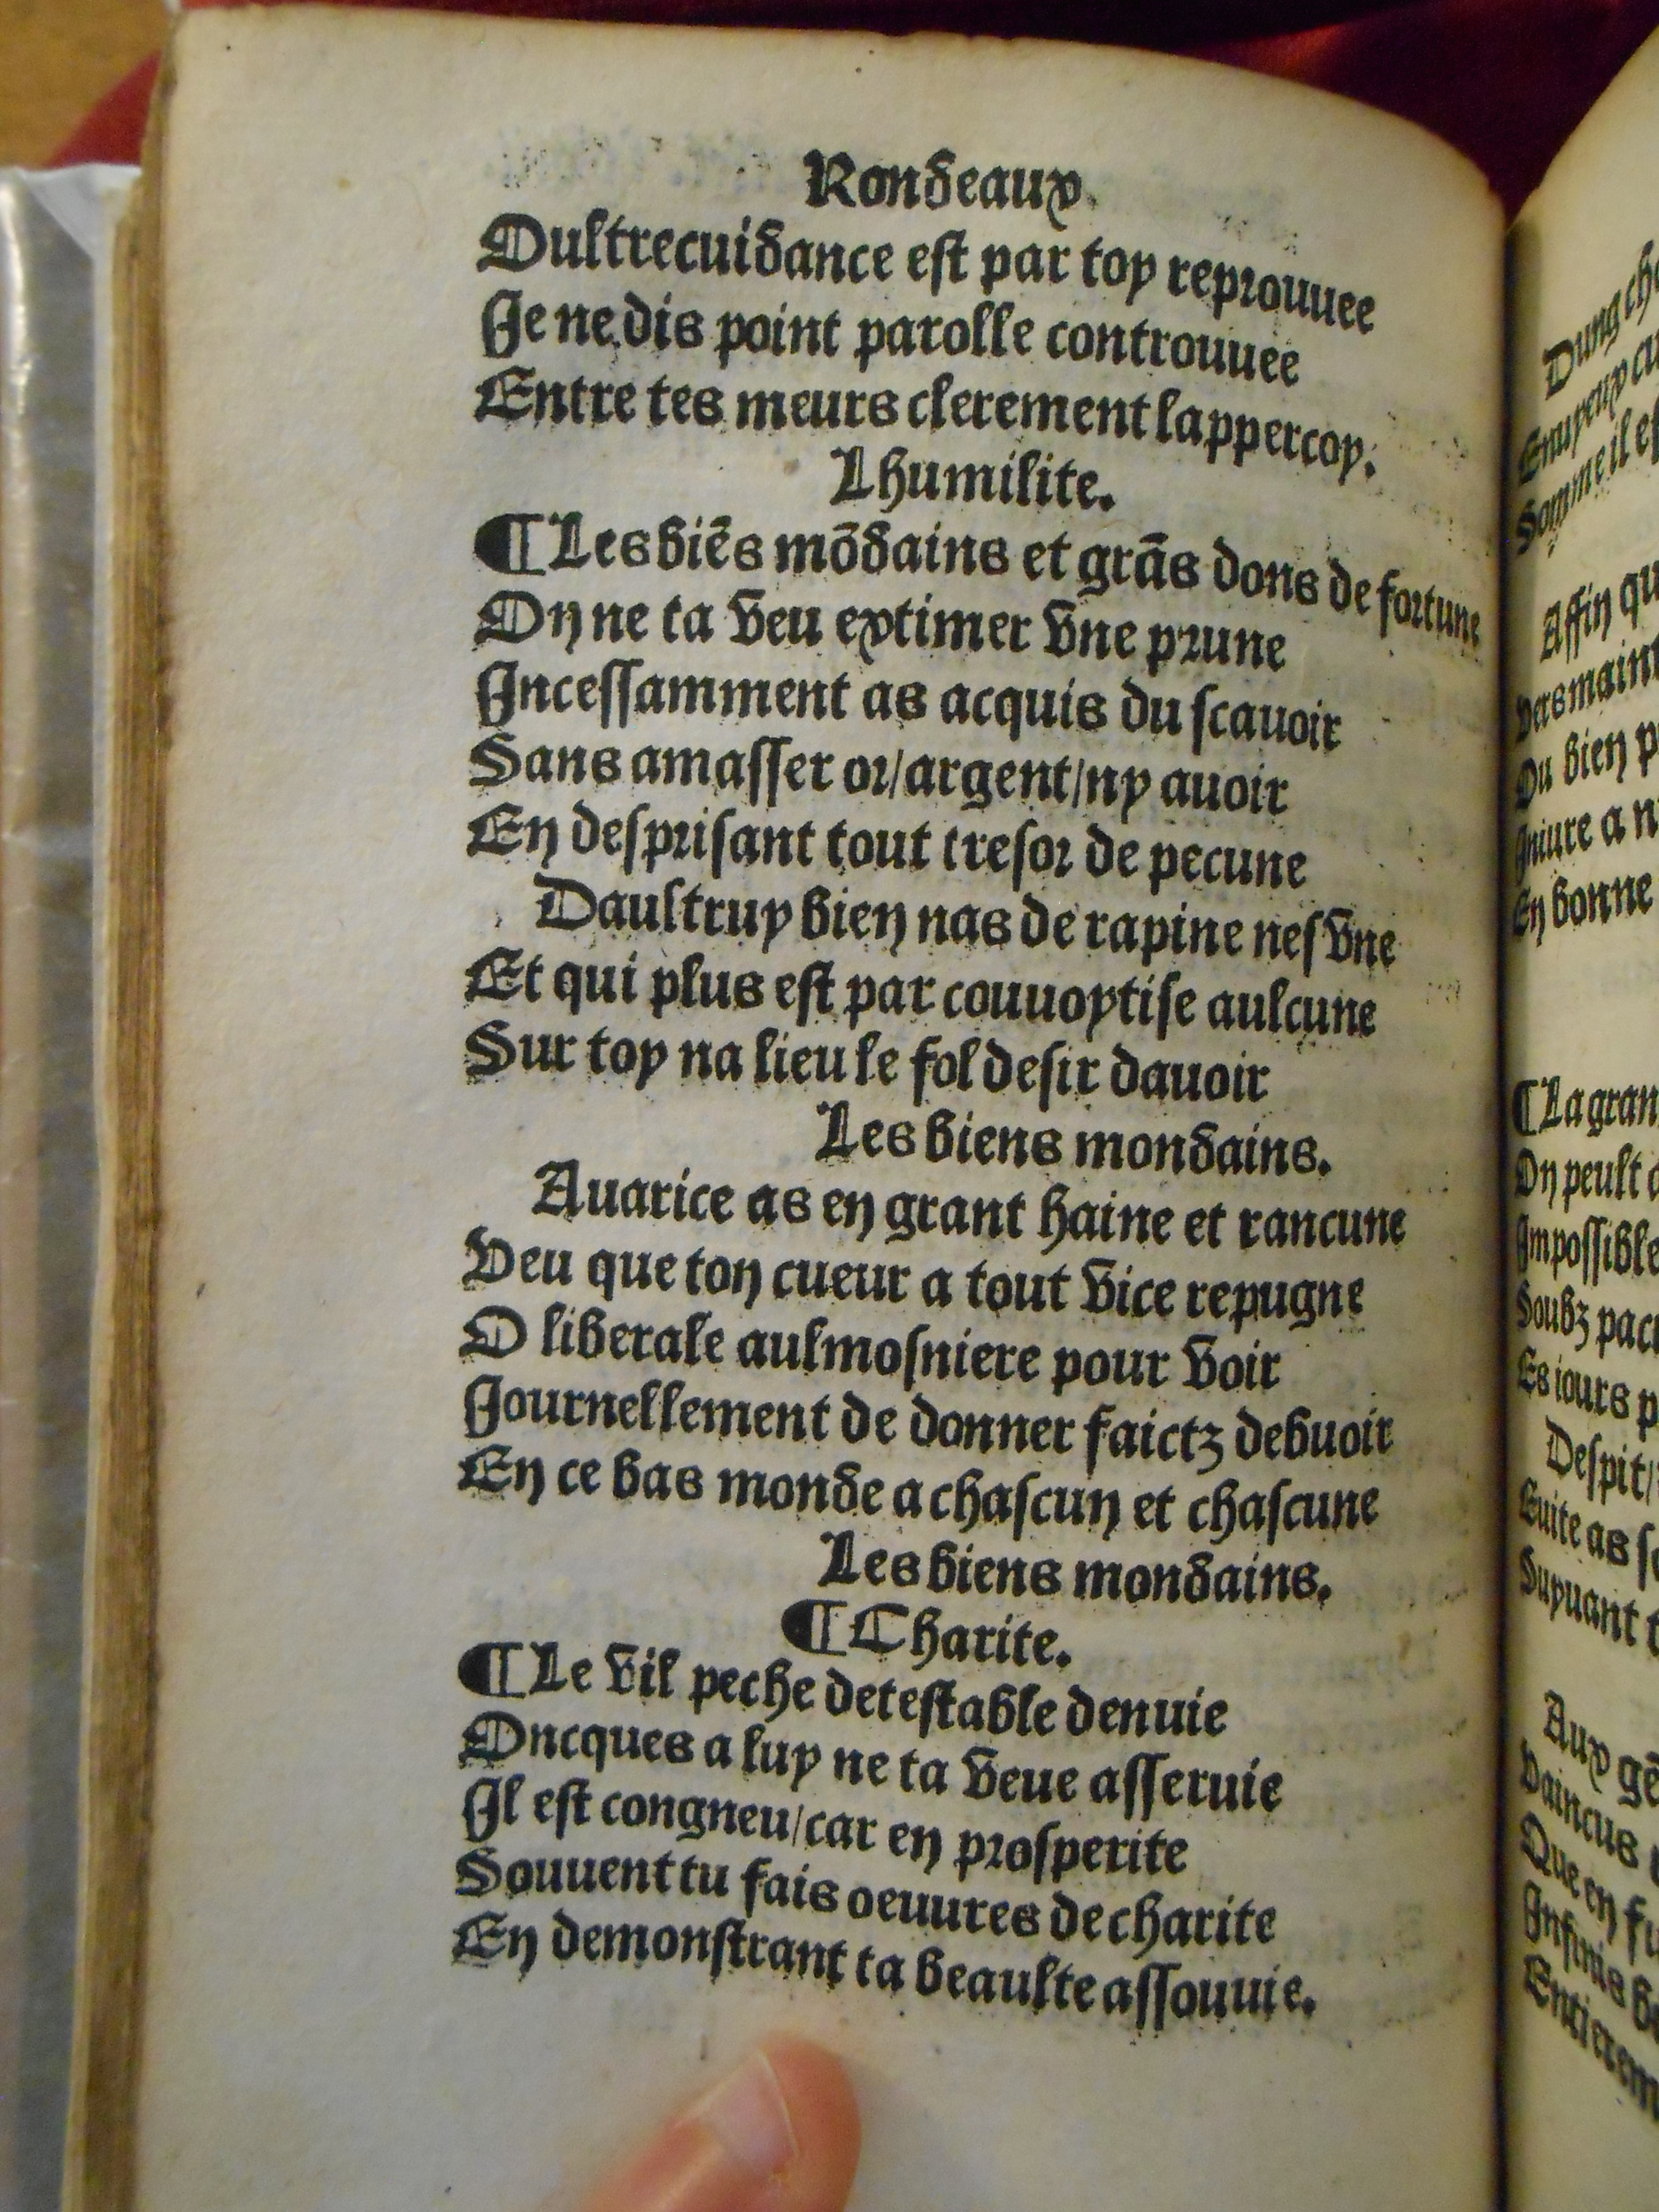 Rondeaux
Dultrecuidance est par toy reprouuee
Je ne dis point parolle controuuee
Entre tes meurs clerement lappercoy.
Lhumilite.
¶Les biẽs mõdains et grãs dons de fortune
On ne ta veu extimer vne prune
Incessamment as acquis du scauoir
Sans amasser or/argent/ny auoir
En desprisant tout tresor de pecune
Daultruy bien nas de rapine nesvne
Et qui plus est par couuoytise aulcune
Sur toy na lieu le fol desir dauoir
Les biens mondains.
Auarice as en grant haine et rancune
Veu que ton cueur a tout vice repugne
O liberale aulmosniere pour voir
Journellement de donner faictz debuoir
En ce bas monde a chascun et chascune
Les biens mondains.
¶Charite.
¶Le vil peche detestable denuie
Oncques a luy ne ta veue asseruie
Il est congneu/car en prosperite
Souuent tu fais oeuures de charite
En demonstrant ta beaulte assouuie.
Affin
Du bien
En bonne
¶La
On peult
Impossible
Soubz
Es iours
Despit/
Suyuant
Aux
Vaincus
Que en